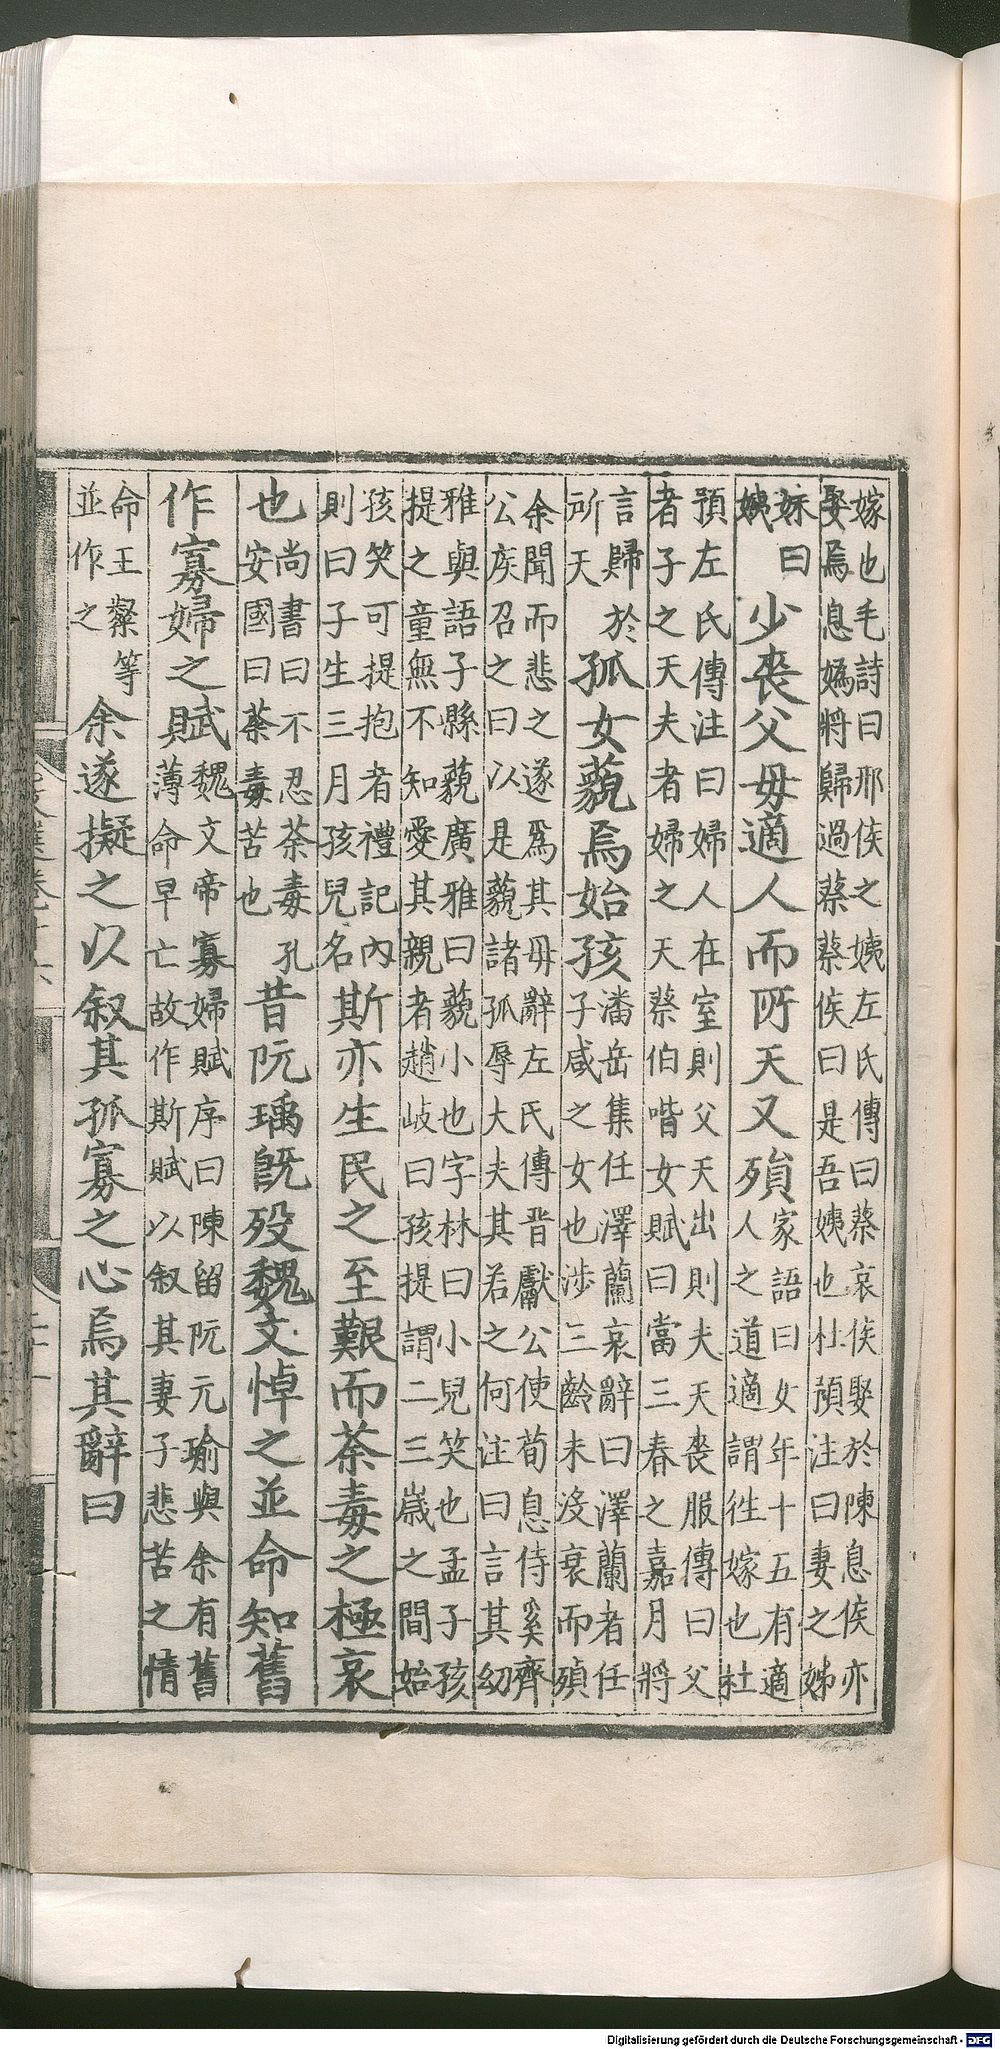 嫁也毛詩曰邢侯之姨左氏傳曰蔡哀侯娶於陳息侯亦
娶焉息嬀將歸過蔡蔡侯曰是吾姨也杜預注曰妻之姊
妹曰
姨
少喪父母適人而所天又殞
家語曰女年十五有適
人之道適謂徃嫁也杜
預左氏傳注曰婦人在室則父天出則夫天喪服傳曰父
者子之天夫者婦之天蔡伯喈女賦曰當三春之嘉月將
言歸於
所天
孤女藐焉始孩
潘岳集任澤蘭哀辭曰澤蘭者任
子咸之女也涉三齡未沒衰而殞
余聞而悲之遂爲其母辭左氏傳晋獻公使荀息侍奚齊
公疾召之曰以是藐諸孤辱大夫其若之何注曰言其幼
雅與語子縣藐廣雅曰藐小也字林曰小兒笑也孟子孩
提之童無不知愛其親者趙岐曰孩提謂二三歲之間始
孩笑可提抱者禮記內
則曰子生三月孩兒名
斯亦生民之至艱而荼毒之極哀
也
尚書曰不忍荼毒孔
安國曰荼毒苦也
昔阮瑀旣殁魏文悼之並命知舊
作寡婦之賦
魏文帝寡婦賦序曰陳留阮元瑜與余有舊
薄命早亡故作斯賦以叙其妻子悲苦之情
命王粲等
並作之
余遂擬之以叙其孤寡之心焉其辭曰
Digitalisierung gefördert durch die Deutsche Forschungsgemeinschaft - DFG